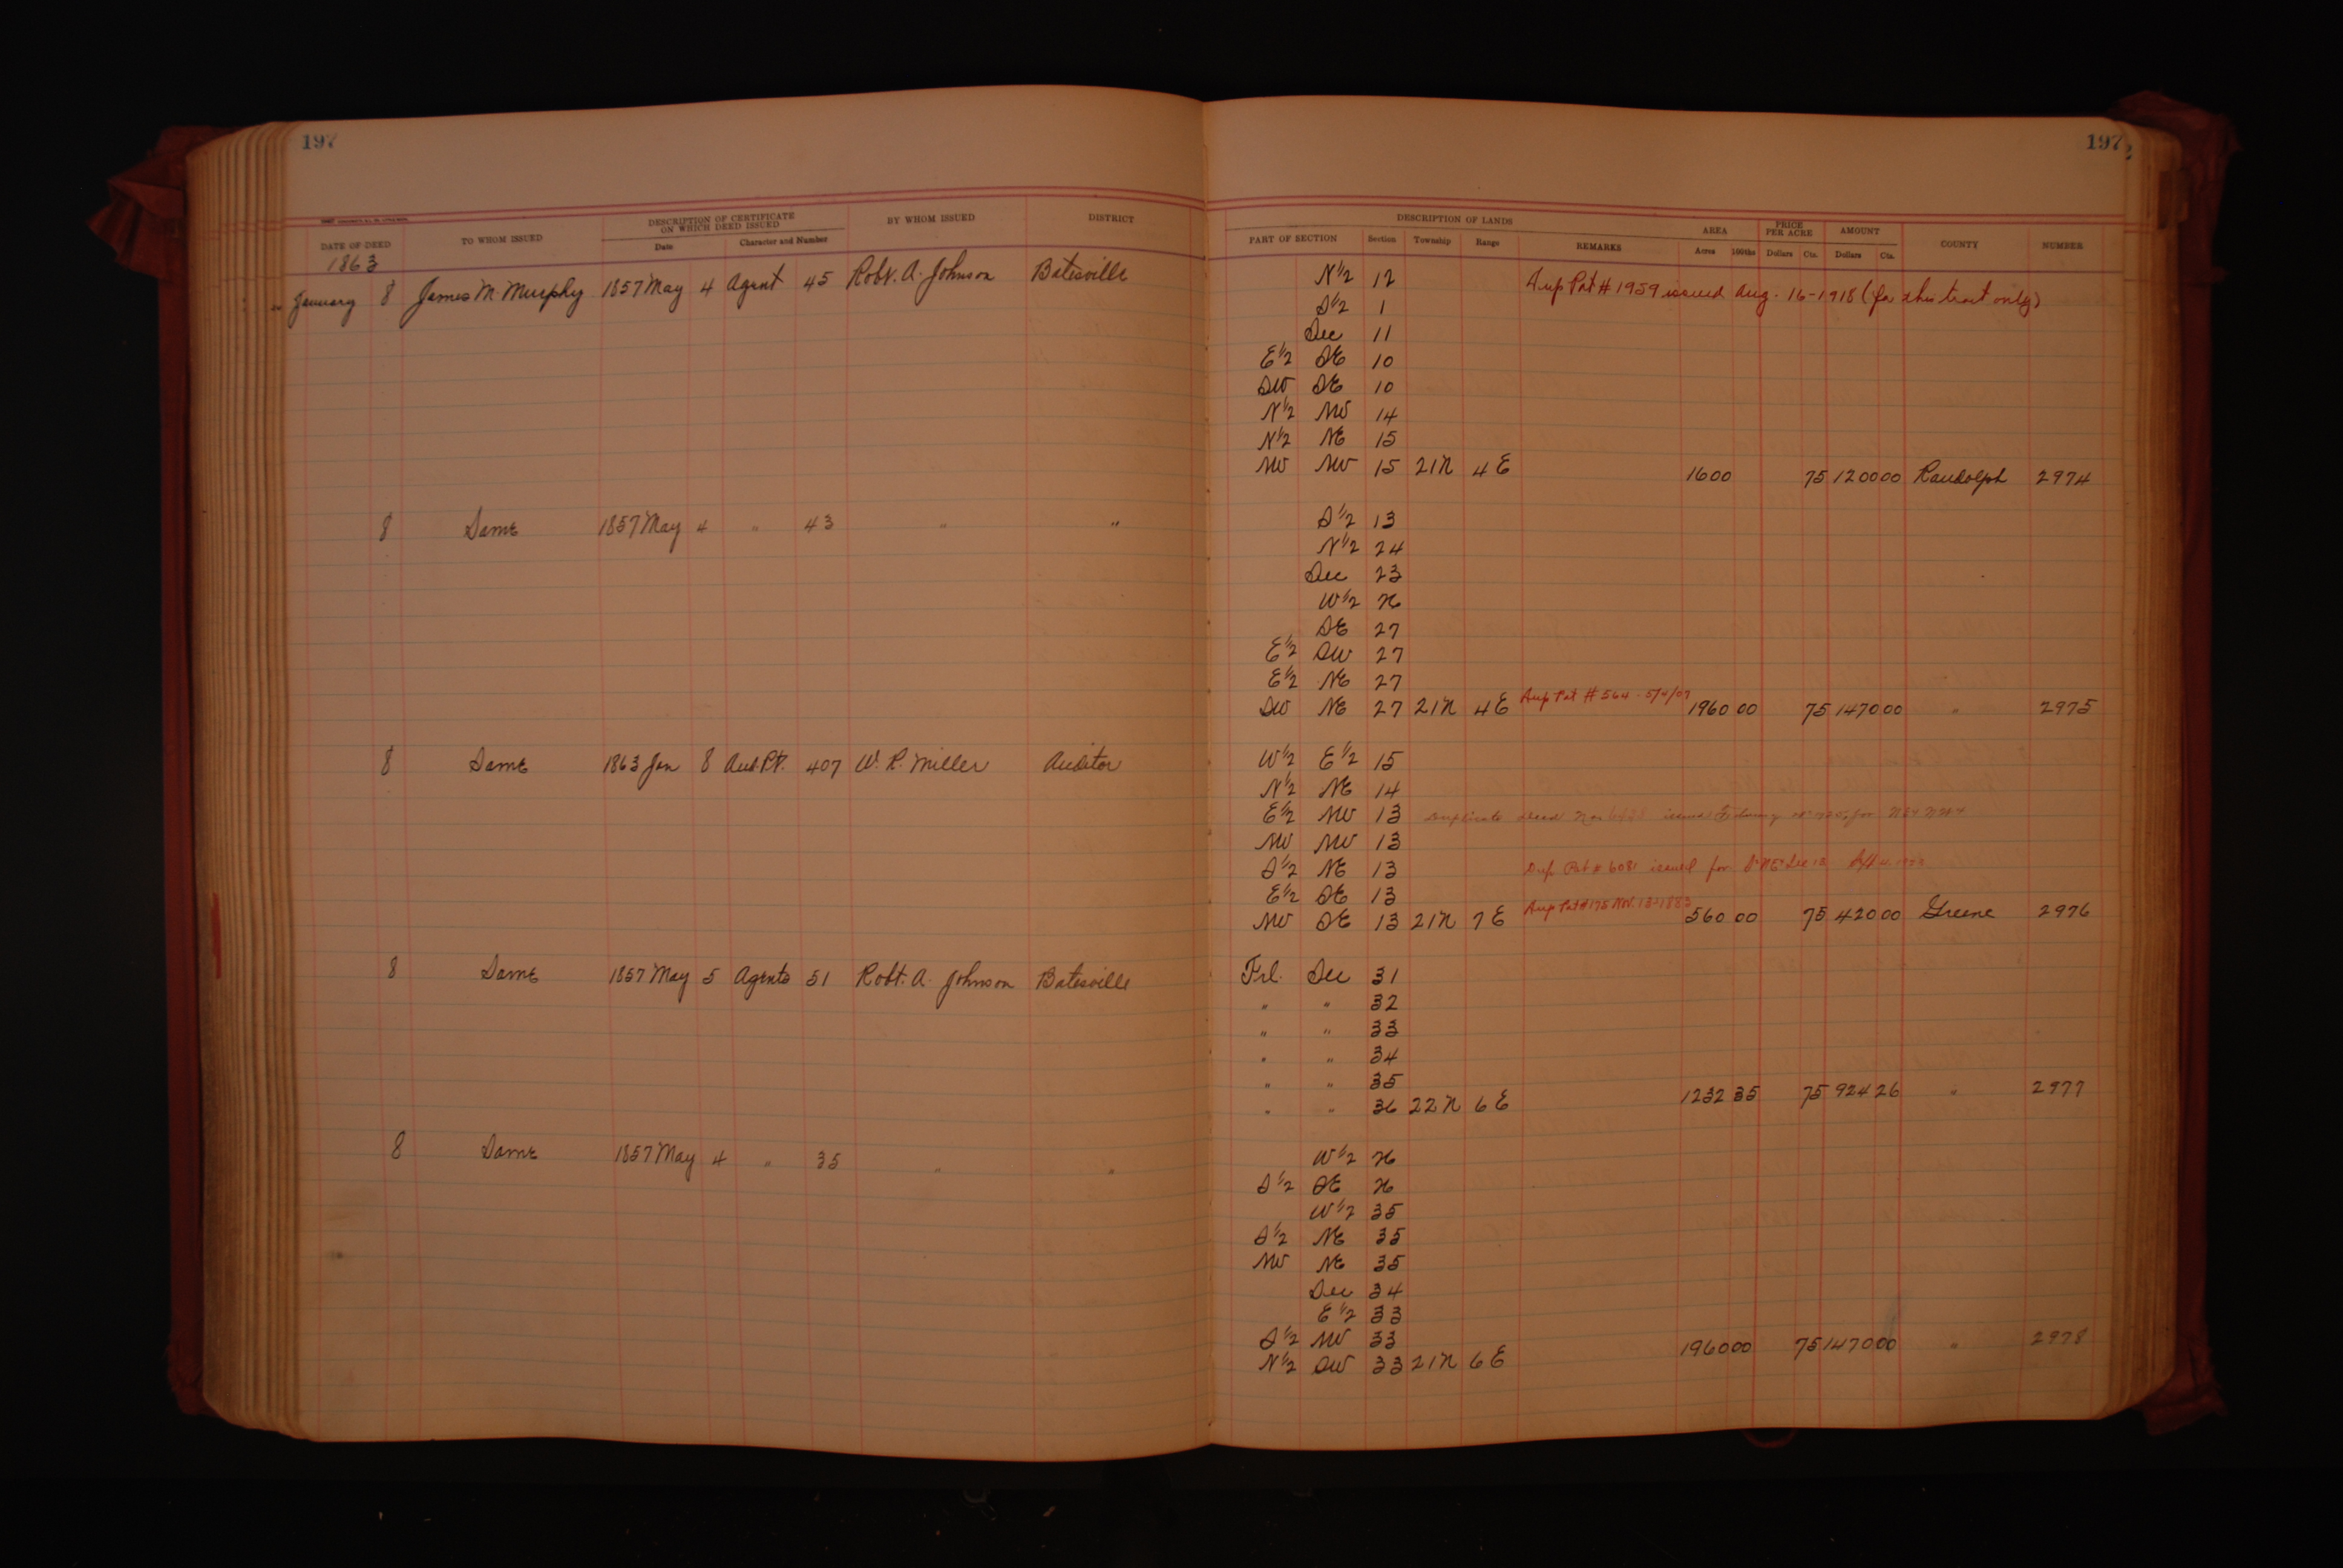 197 197
DESCRIPTION OF CERTIFICATE ON WHICH DEED ISSUED BY WHOM ISSUED DISTRICT DESCRIPTION OF LANDS AREA PRICE PER ACRE AMOUNT
DATE OF DEED TO WHOM ISSUED Date Character and Number PART OF SECTION Section Township Range REMARKS Acres 100ths Dollars Cts. Dollars Cts. COUNTY NUMBER
1863
January 8 James M. Murphy 1857 May 4 Agent 45 Robt. A. Johnson Batesville N½ 12 Dup Pat # 1959 issued Aug. 16-1918 (for this tract only)
S½ 1
Sec 11
E½ SE 10
SW SE 10
N½ NW 14
N½ NE 15
NW NW 15 21N 4E 1600 75 1200 00 Randolph 2974
8 Same 1857 May 4 " 43 " " S½ 13
N½ 24
Sec 23
W½ 26
SE 27
E½ SW 27
E½ NE 27
SW NE 27 21N 4E Dup Pat # 564 - 5/4/07 1960 00 75 1470 00 " 2975
8 Same 1863 Jan 8 Aud. Pt. 407 W. R. Miller Auditor W½ E½ 15
N½ NE 14
E½ NW 13 Duplicate Deed issued February for
NW NW 13
S½ NE 13 Dup Pat # 6081 issued for
E½ SE 13
NW SE 13 21N 7E Dup Pat # 175 Nov. 13-1883 560 00 75 420 00 Greene 2976
8 Same 1857 May 5 Agents 51 Robt. A. Johnson Batesville Frl. Sec 31
" " 32
" " 33
" " 34
" " 35
" " 36 22N 6E 1232 35 75 924 26 " 2977
8 Same 1857 May 4 " 35 " " W½ 26
S½ SE 26
W½ 35
S½ NE 35
NW NE 35
Sec 34
E½ 33
S½ NW 33
N½ SW 33 21N 6E 1960 00 75 1470 00 " 2978